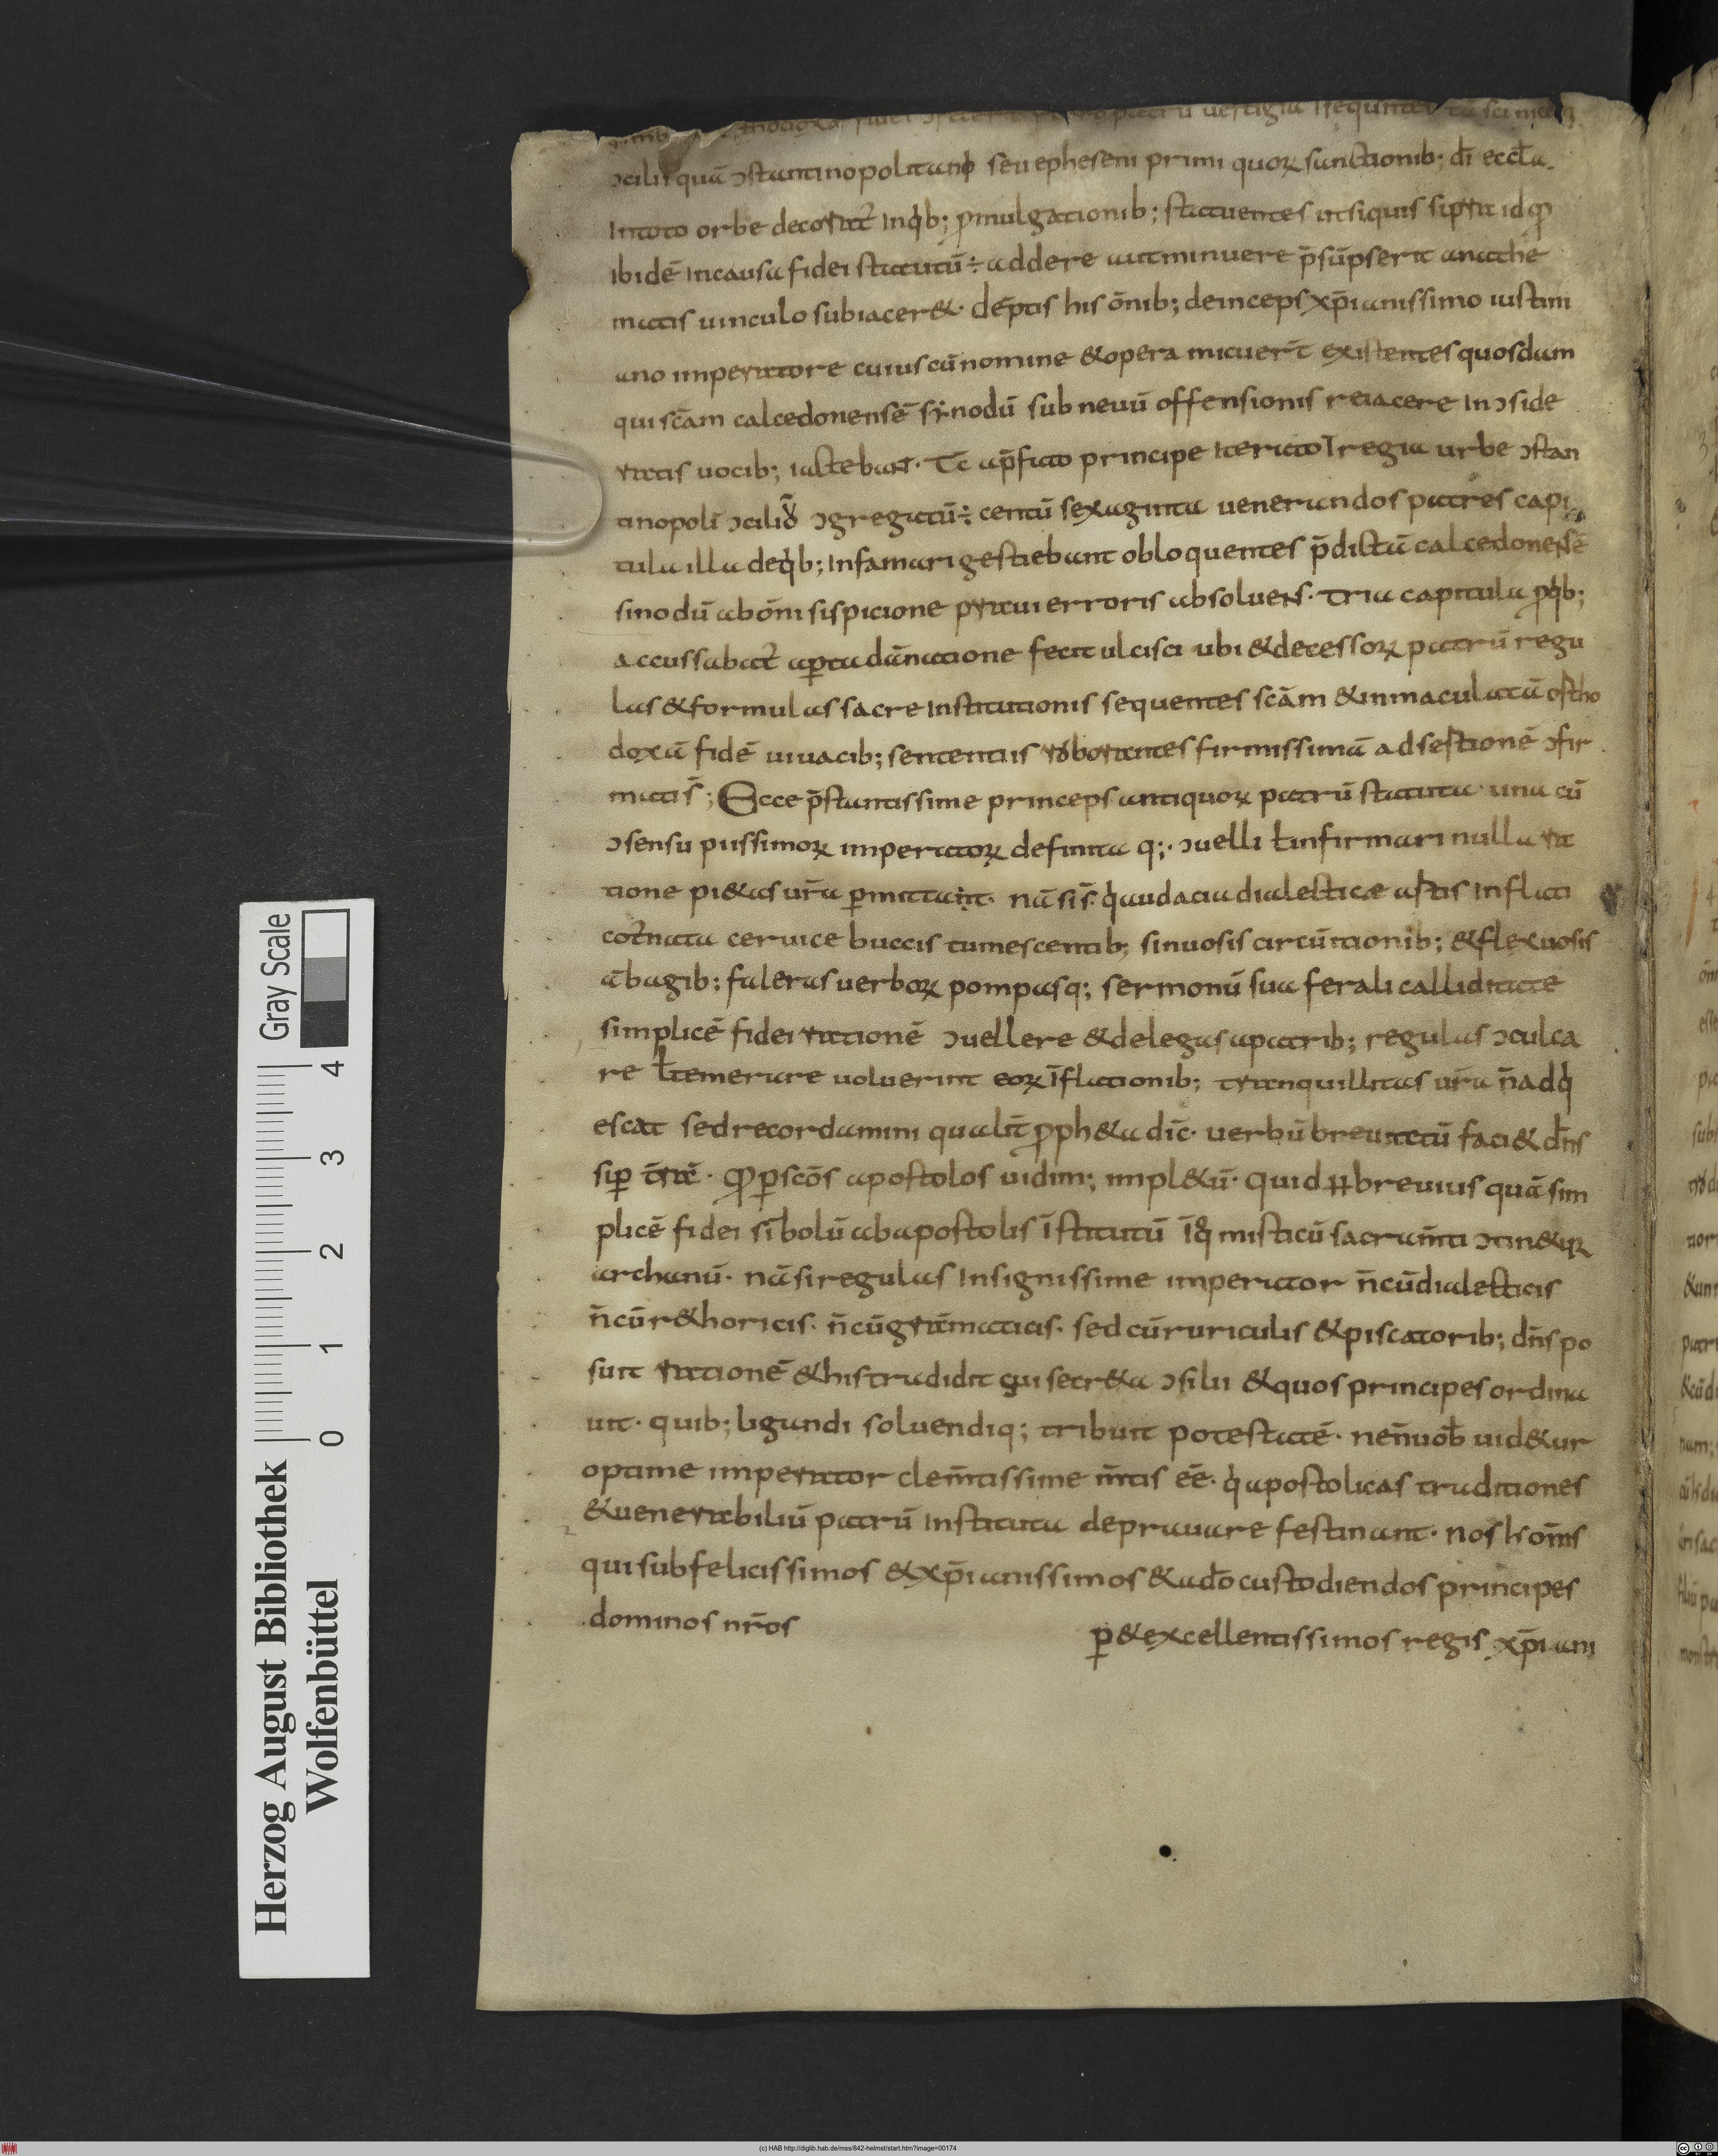 ɔcilii quā ɔstantinopolitani seu epheseni primi quoꝝ sanctionib; dī eccła
Intoto orbe decorat̄ Inqb; ꝓmulgationib; statuentes ut siquis supra id qđ
ibidē Incausa fidei statutū ÷ addere aut minuere p̄sūpserit anathe
matis uinculo subiacer&. dēptis his ōnib; deinceps xp̄ianissimo iustini
ano imperatore cuius cū nomine & opera micuer̄t existentes quosdam
qui sc̄am calcedonensē sẏnodū sub neuū offensionis reiacere Inɔside
ratis uocib; iactebant. Tc ap̄fato principe Iterato Ī regia urbe ɔstan
tinopoli ɔciliū ɔgregatū ÷ centū sexaginta uenerandos patres capi
tula illa deqb; Infamari gestiebant obloquentes p̄dictā calcedonensē
sinodū abōni sispicione praui erroris absoluens. tria capitula ꝓqb;
accussabat̄ aꝑta dānatione fecit ulcisci ubi & decessoꝝ patrū regu
las & formulas sacre Institutionis sequentes sc̄am & inmaculatā ortho
doxā fidē uiuacib; sententiis roborantes firmissimā adsertionē ɔfir
matis̄; Ecce p̄stantissime princeps antiquoꝝ patrū statuta una cū
ɔsensu piissimoꝝ imperatoꝝ definita q;. ɔuelli ł infirmari nulla ra
tione pi&as ur̄a ꝑmittant. nā sis̄ q audacia dialecticæ astis Inflati
cot̄nata ceruice buccis tumescentib; sinuosis circūitionib; & flexuosis
ābagib; faleras uerboꝝ pompasq; sermonū sua ferali calliditate
simplicē fidei rationē ɔuellere & delegas apatrib; regulas ɔculca
re ł temerare uoluerint eoꝝ īflationib; tranquillitas ur̄a n̄ adqi
escat sed recordamini qualit̄ ꝓph&a dic̄. uerbū breuitatū faci& dn̄s
sup t̄rā. qđ ꝑ scōs apostolos uidim; impl&ū. quid ɫɫ breuius quā sim
plicē fidei sibolū ab apostolis īstitutū īq misticū sacram̄ti ɔtin&ur
archanū. nā si regulas Insignissime imperator n̄ cū dialecticis
n̄ cū r&horicis. n̄ cū grāmaticis. sed cū ruriculis & piscatorib; dn̄s po
suit rationē & his tradidit qui secr&a ɔsilii & quos principes ordina
uit. quib; ligandi soluendiq; tribuit potestatē. ne n̄ uob̄ uid&ur
optime imperator clem̄tissime m̄tis eē. q apostolicas traditiones
& uenerabiliū patrū Instituta deprauare festinant. nos h om̄s
qui sub felicissimos & xp̄ianissimos & ado custodiendos principes
dominos nr̄os ꝑ & excellentissimos regis xp̄iani
Gray Scale
0 1 2 3 4
Herzog August Bibliothek
Wolfenbüttel
(c) HAB http://diglib.hab.de/mss/842-helmst/start.htm?image=00174